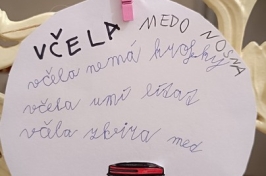 VČELA MEDONOSNA
včela nemá krofky
včela umí lítat
včela zbíra med